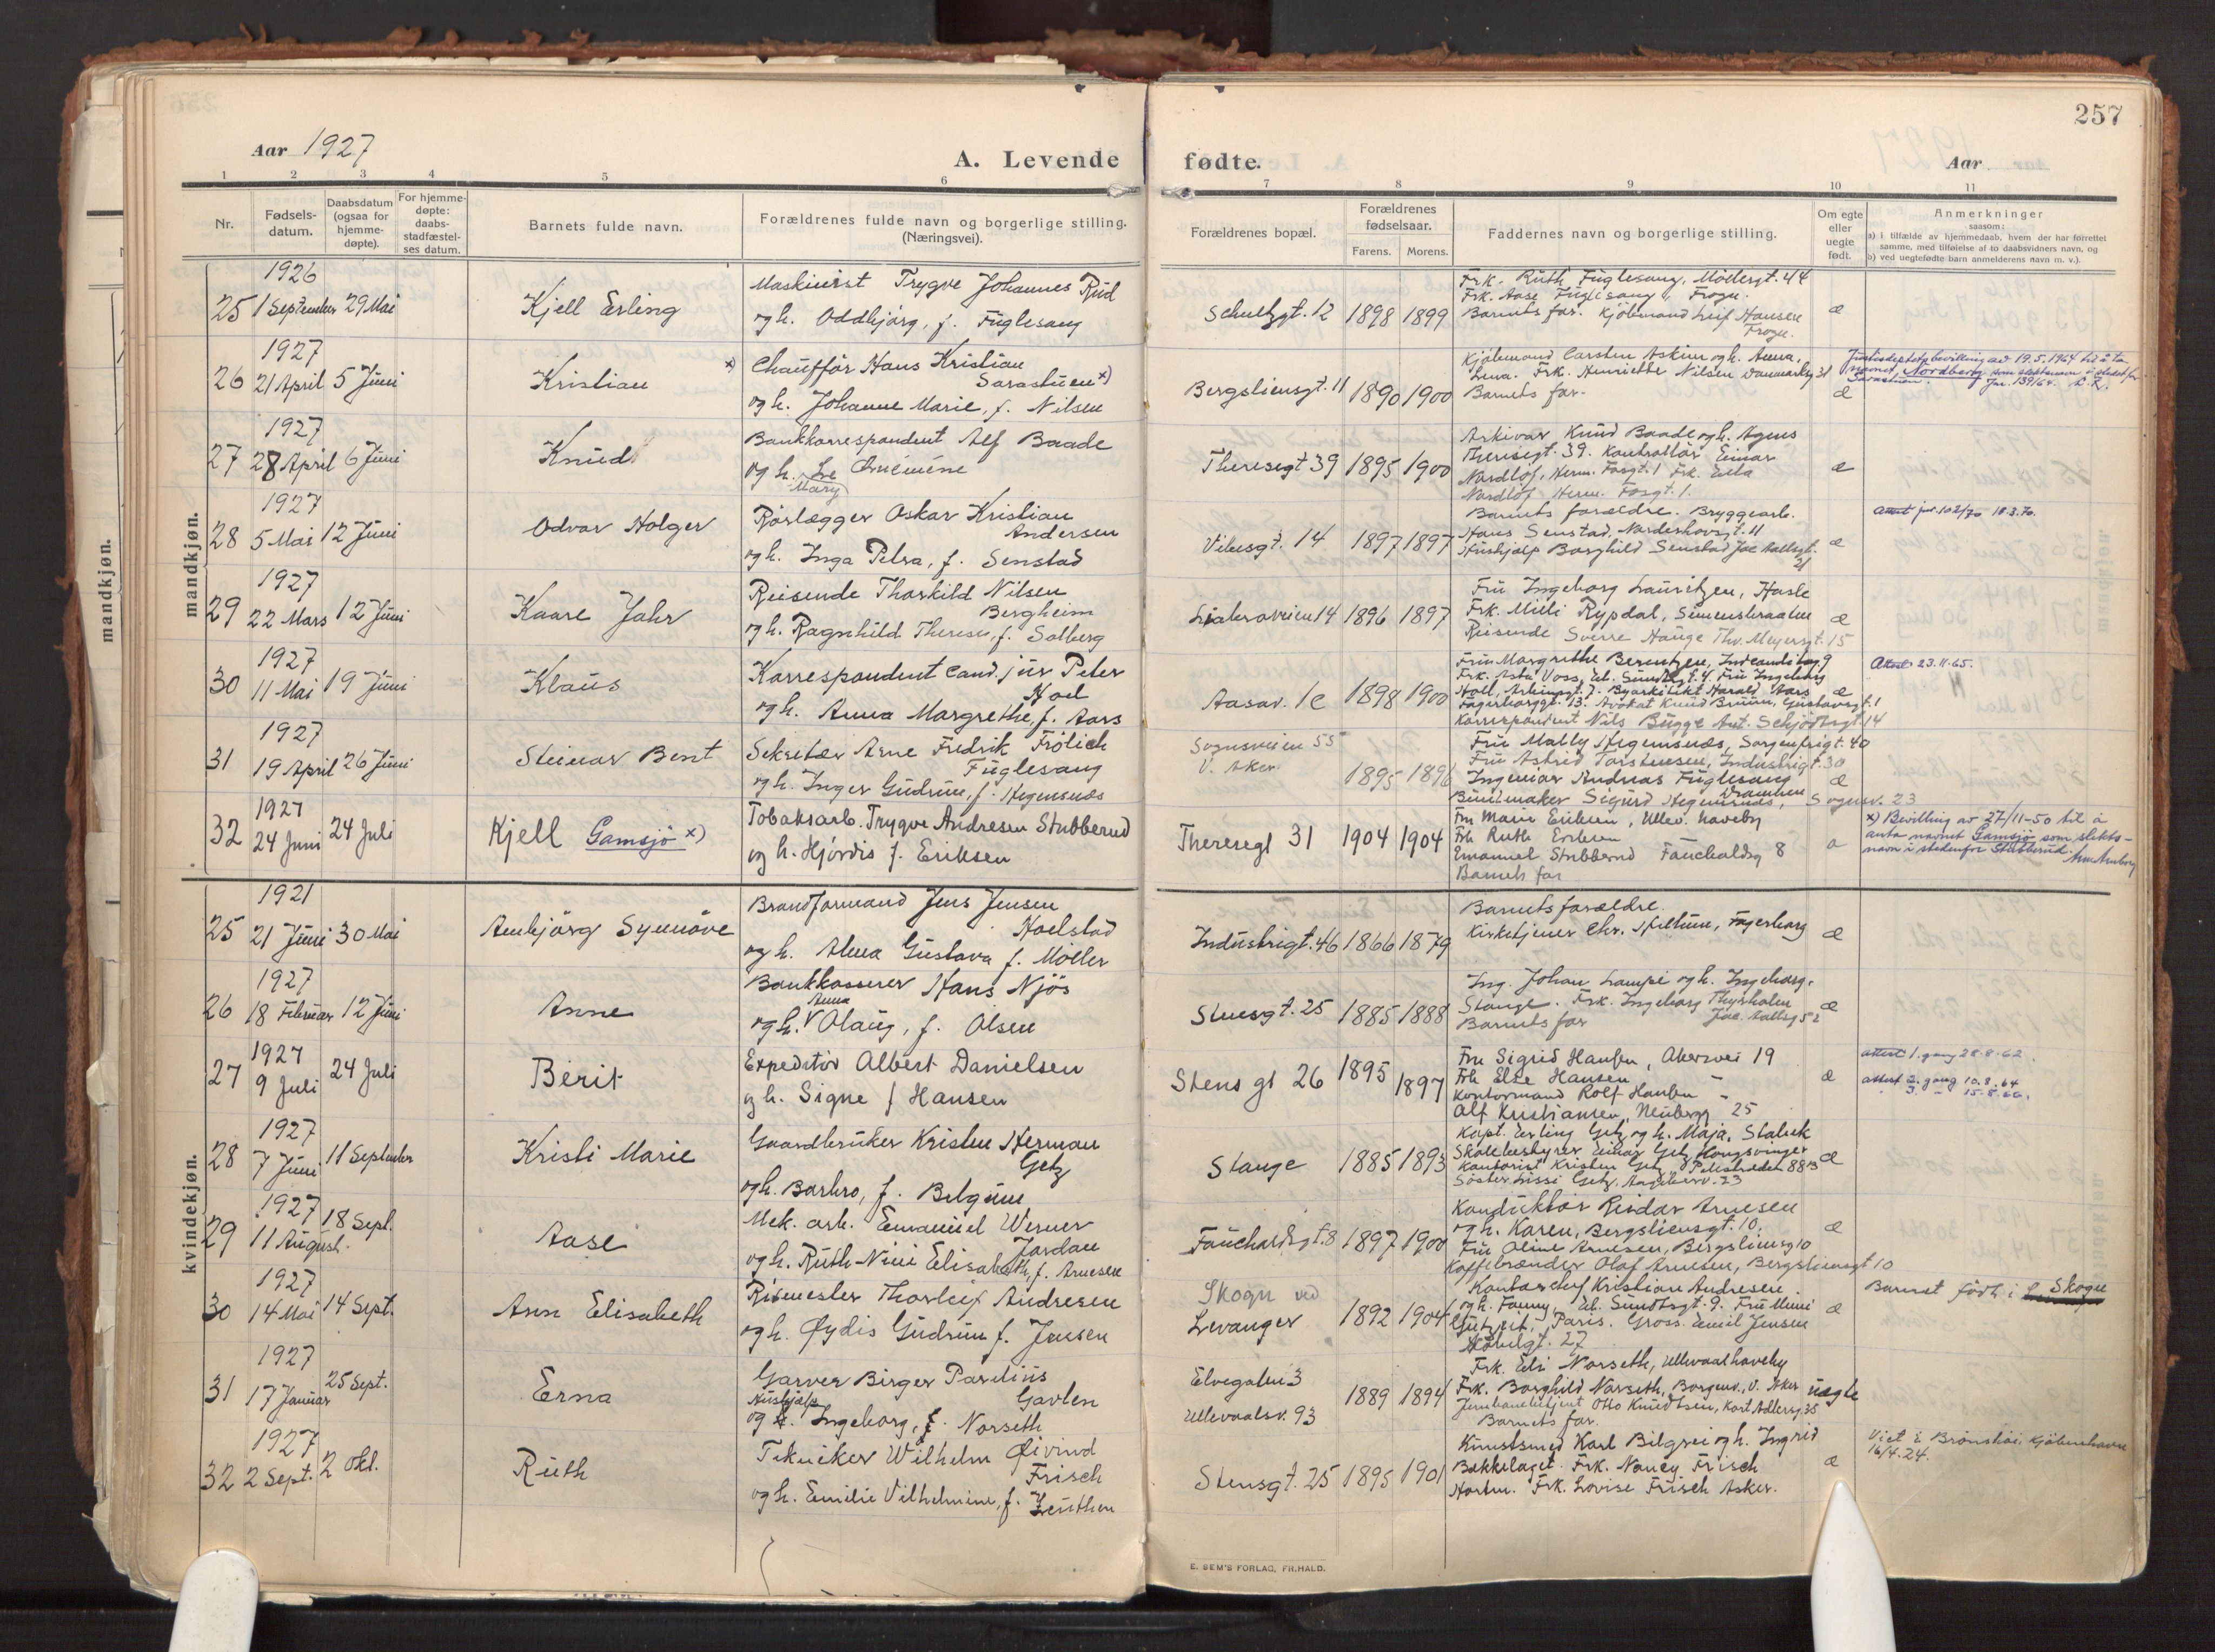 257
Aar 1927
A. Levende
fødte.
Aar
1 2 3 4 5 6 7 8 9 10 11
Nr.
Fødsels-
datum.
Daabsdatum
(ogsaa for
hjemme-
døpte).
For hjemme-
døpte:
daabs-
stadfæstel-
ses datum.
Barnets fulde navn.
Forældrenes fulde navn og borgerlige stilling.
(Næringsvei).
Forældrenes bopæl.
Forældrenes
fødselsaar.
Farens. Morens.
Faddernes navn og borgerlige stilling.
Om egte
eller
uegte
født.
Anmerkninger
saasom:
a) i tilfælde av hjemmedaab, hvem der har forrettet
samme, med tilføielse af to daabsvidners navn, og
b) ved uegtefødte barn anmelderens navn m. v.).
mandkjøn.
mandkjøn.
1926
25 1 September 29 Mai
Kjell Erling
Maskinist Trygve Johannes Rud
og h. Oddbjørg, f. Fuglesang
Schultzgt. 12 1898 1899
Frk. Ruth Fuglesang, Møllergt. 44
Frk. Aase Fuglesang, Frogn.
Barnets far. Kjøbmand Leif Hansen
Frogn.
æ
1927
26 21 April 5 Juni
Kristian x)
Chauffør Hans Kristian
Sarastuen x)
og h. Johanne Marie, f. Nilsen
Bergsliensgt. 11 1890 1900
Kjøbmand Carsten Askim og h. Anna,
Lena. Frk. Henriette Nilsen Danmarksg 31
Barnets far.
æ
bevilling av 19.5.1964 til å ta
navnet Nordberg som slektsnavn i stedet for
Sarastuen. Jnr. 139/64.
1927
27 28 April 6 Juni
Knud
Bankkorrespondent Alf Baade
og h.
Mary
Theresegt 39 1895 1900
Arkivar Knud Baade og h. Agnes
Theresegt. 39. Kontrollør Einar
Nordlöf, Herm. Fossgt. 1 Frk. Evela
Nordlöf Herm. Fossgt. 1.
æ
1927
28 5 Mai 12 Juni
Odvar Holger
Rørlægger Oskar Kristian
Andersen
og h. Inga Petra, f. Senstad
Vibesgt. 14 1897 1897
Barnets forældre. Bryggearb.
Hans Senstad, Nordershovsgt. 11
Hushjælp Borghild Senstad Jac Aallsgt.
21
æ
Attest jnr. 102/70 18.3.70.
1927
29 22 Mars 12 Juni
Kaare Jahr
Reisende Thorkild Nilsen
Bergheim
og h. Ragnhild Therese, f. Solberg
Liabroveien 14 1896 1897
Fru Ingeborg Lauritzen, Hasle
Frk. Milli Rypdal, Simensbraaten
Reisende Sverre Hauge Thv. Meyersgt. 15
æ
1927
30 11 Mai 19 Juni
Klaus
Korrespondent Cand. jur Peter
Hoel
og h. Anna Margrethe, f. Aars
Aasav. 1c 1898 1900
Fru Margrethe Berentzen,
Frk. Asta Voss, El. Sundtsgt. 4. Fru Ingeborg
Holl, Arbiensgt. 7. Byarkitekt Harald Aars
Fagerborggt. 13. Avokat Knud Bruun, Gustavsgt. 1
Korrespondent Nils Bugge Ant. Schjødtsgt. 14
æ
Attest 23.11.65.
1927
31 19 April 26 Juni
Steinar Bent
Sekretær Arne Fredrik Frölich
Fuglesang
og h. Inger Gudrun, f. Hegensnæs
Sognsveien 55
V. Aker. 1895 1896
Fru Mally Hegensnæs, Sorgenfrigt. 40
Fru Astrid Torstensen, Industrigt. 30
Ingeniør Andreas Fuglesang
Drammen
Buntmaker Sigurd Hegensnæs, Sognsv. 23
æ
1927
32 24 Juni 24 Juli
Kjell Gamsjø x)
Tobaksarb. Trygve Andresen Stubberud
og h. Hjørdis f. Eriksen
Theresegt 31 1904 1904
Fru Marie Eriksen, Ullev. haveby
Frk Ruth Eriksen
Emanuel Stubberud Fauchaldsg 8
Barnets far
x) Bevilling av 27/11-50 til å
anta navnet Gamsjø som slekts-
navn i stedenfor Stubberud.
kvindekjøn.
1921
25 21 Juni 30 Mai
Anbjörg Synnöve
Brandformand Jens Jensen
Hoelstad
og h. Alma Gustava f. Möller
Industrigt. 46 1866 1879
Barnets forældre.
Kirketjener Chr. Fagerborg
æ
1927
26 18 Februar 12 Juni
Anne
Bankkasserer Hans Njös
Anna
og h. V Olaug, f. Olsen
Stensgt. 25 1885 1888
Ing. Johan Lampe og h. Ingeborg.
Stange. Frk. Ingeborg Thyrholm
Barnets far Jac. Aallsg 52
æ
1927
27 9 Juli 24 Juli
Berit
Expeditör Albert Danielsen
og h. Signe f Hansen
Stens gt 26 1895 1897
Fru Sigrid Hansen, Akersvei 19
Frk Else Hansen
Kontormand Rolf Hansen
Alf Kristiansen, Neubergg 25
æ
attest 1. gang 28.8.62.
attest 2. gang 10.8.64
1927
28 7 Juni 11 September
Kristi Marie
Gaardbruker Kristen Herman
Getz
og h. Barbro, f. Belgum
Stange 1885 1893
Kapt. Erling Getz og h. Maja, Stabek
Skolebestyrer Einar Getz, Kongsvinger
Kontorist Kristen Getz, Pilestrædet 88
Söster Lissi Getz,
æ
1927
29 11 August. 18 Sept.
Aase
Mek. arb. Emanuel Werner
Jordan
og h. Ruth-Nini Elisabeth, f. Arnesen
Fauchaldsgt. 8 1897 1900
Konduktør Reidar Arnesen
og h. Karen, Bergsliensgt. 10.
Fru Oline Arnesen, Bergsliensg 10
Kaffebrænder Olaf Arnesen, Bergsliensgt 10
æ
1927
30 14 Mai 14 Sept.
Ann Elisabeth
Thorleif Andresen
og h. Øydis Gudrun f. Jensen
Skogn ved
Levanger 1892 1904
Kontorchef Kristian Andresen
og h. Fanny, El. Sundtsgt. 9. Fru Mimi
Gutzeit, Paris. Gross. Emil Jensen
Nobelgt. 27
æ
Barnet født i Skogn
1927
31 17 Januar 25 Sept.
Erna
Garver Birger Pareliius
Gavlen
Hushjælp
og Ingeborg, f. Norseth
Elvegaten 3
Ullevaalsv. 93 1889 1894
Frk. Eli Norseth, Ullevaal haveby
Frk. Borghild Norseth, Borgenv., V. Aker
Jernbanebetjent Otto Knudtsen, Kort Adlersg. 35
Barnets far.
uegte
1927
32 2 Sept. 2 Okt.
Ruth
Tekniker Wilhelm Øivind
Frisch
og h. Emilie Vilhelmine, f. Zeuthen
Stensgt. 25 1895 1901
Kunstsmed Karl Bilgrei og h. Ingrid
Bækkelaget. Frk. Nancy Frisch
Horten. Frk. Lovise Frisch Asker.
æ
Viet i Brönshöi, Kjöbenhavn
16/4. 24.
E. SEM'S FORLAG, FR.HALD.